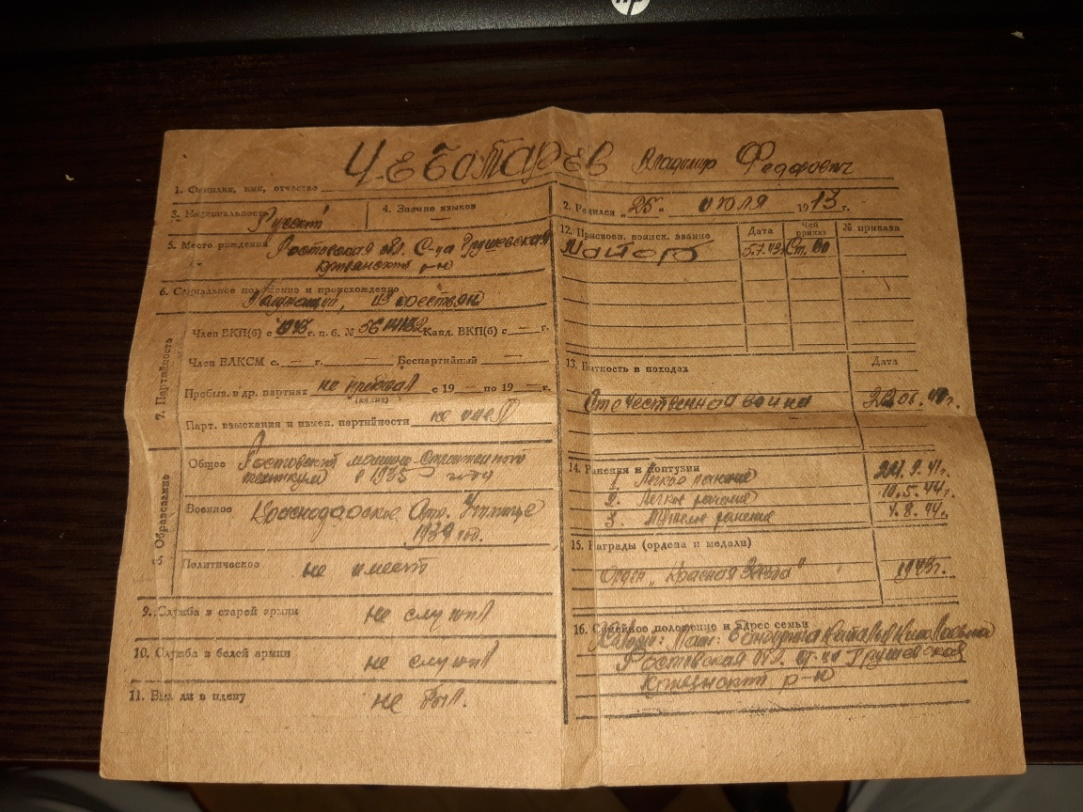 hp
Чеботарев Владимир Федорович
1. Фамилия, имя, отчество
2. Родился „25“ июля 1913 г.
3. Национальность Русский
4. Знание языков
5. Место рождения Ростовская обл. С-ца Грушевская
р-н
6. Социальное положение и происхождение
Служащий, из крестьян
7. Партийность
Член ВКП(б) с 1943 г. п. б. № Канд. ВКП(б) с — г.
Член ВЛКСМ с — г. — Беспартийный —
Пребыв. в др. партиях не пребывал с 19 — по 19 — г.
Парт. взыскания и измен. партийности не имел
8. Образование
Общее Ростовский машино-строительного
техникум в 1935 году
Военное Краснодарское Училище
1939 год.
Политическое не имеет
9. Служба в старой армии не служил
10. Служба в белой армии не служил
11. Был ли в плену не был.
12. Присвоен. воинск. звание Дата Чей приказ № приказа
Майор 5.7.43
13. Участие в походах Дата
Отечественная война
14. Ранения и контузии
1. Легкое ранение
2. Легкое ранение 10.5.44г.
3. ранение 4.8.44г.
15. Награды (ордена и медали)
Орден „Красная Звезда“ 1943г.
16. Семейное положение и адрес семьи
Мать:
Ростовская обл. ст-ца Грушевская
р-н